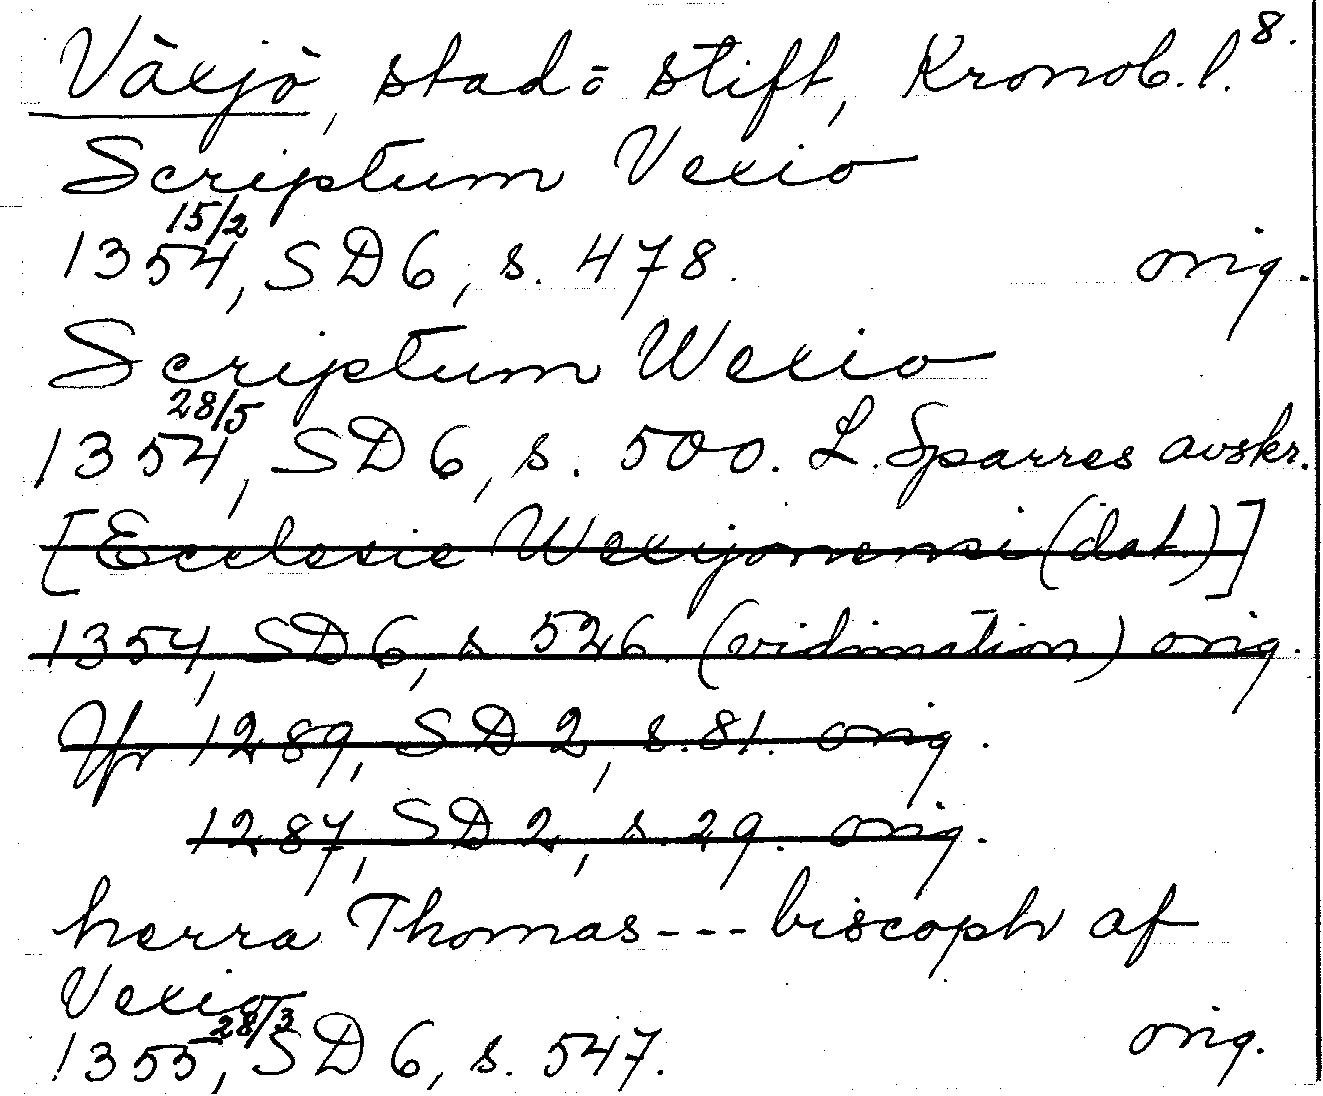 Växjö, stad o stift, Kronob. l. 8.
Scriptum Vexio
1354 15/2, SD 6, s. 478. orig.
Scriptum Wexio
1354 28/5, SD 6, s. 500. L. Sparres avskr.
[Ecclesie Wexyonensi (dat.)]
1354, SD 6, s 526 (vidimation) orig.
Jfr 1289, SD 2, s. 81. orig.
1287, SD 2, s. 29. orig.
herra Thomas --- biscoph af
Vexio
1355 28/3, SD 6, s. 547. orig.